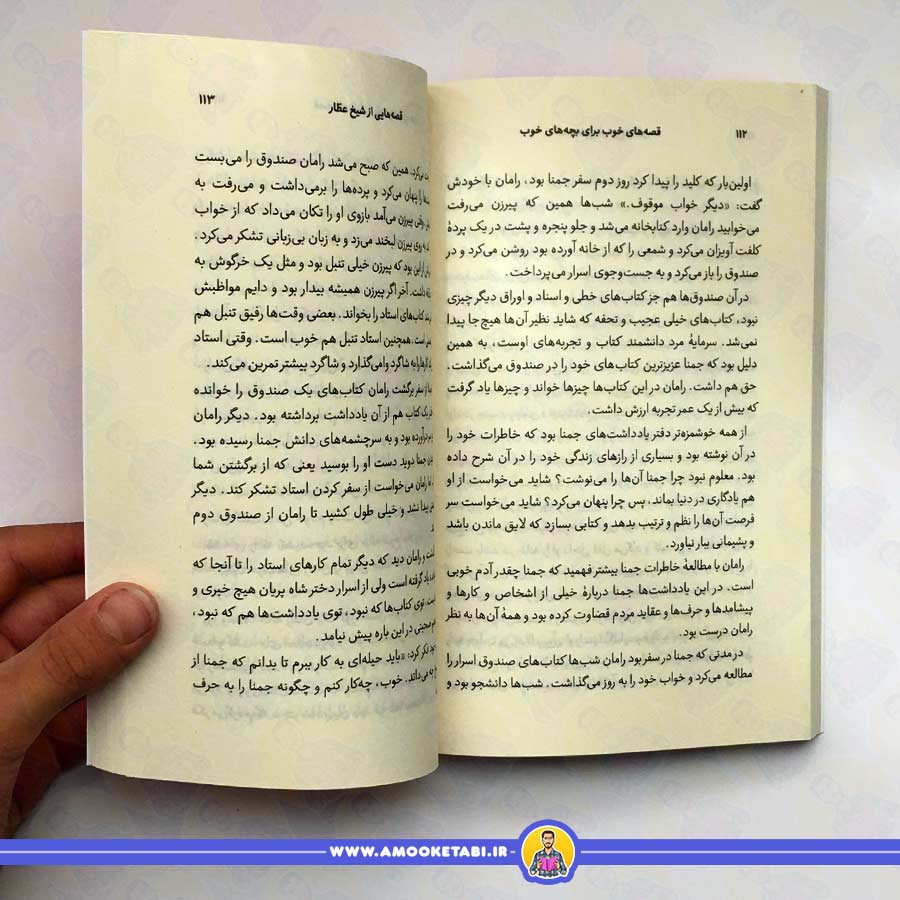 ۱۱۲
قصه‌های خوب برای بچه‌های خوب
اولین‌بار که کلید را پیدا کرد روز دوم سفر جمنا بود. رامان با خودش
گفت: «دیگر خواب موقوف.» شب‌ها همین که پیرزن می‌رفت
می‌خوابید رامان وارد کتابخانه می‌شد و جلو پنجره و پشت در یک پردهٔ
کلفت آویزان می‌کرد و شمعی را که از خانه آورده بود روشن می‌کرد و در
صندوق را باز می‌کرد و به جست‌وجوی اسرار می‌پرداخت.
در آن صندوق‌ها هم جز کتاب‌های خطی و اسناد و اوراق دیگر چیزی
نبود، کتاب‌های خیلی عجیب و تحفه که شاید نظیر آن‌ها هیچ‌جا پیدا
نمی‌شد. سرمایهٔ مرد دانشمند کتاب و تجربه‌های اوست، به همین
دلیل بود که جمنا عزیزترین کتاب‌های خود را در صندوق می‌گذاشت.
حق هم داشت. رامان در این کتاب‌ها چیزها خواند و چیزها یاد گرفت
که بیش از یک عمر تجربه ارزش داشت.
از همه خوشمزه‌تر دفتر یادداشت‌های جمنا بود که خاطرات خود را
در آن نوشته بود و بسیاری از رازهای زندگی خود را در آن شرح داده
بود. معلوم نبود چرا جمنا آن‌ها را می‌نوشت؟ شاید می‌خواست از او
هم یادگاری در دنیا بماند، پس چرا پنهان می‌کرد؟ شاید می‌خواست سر
فرصت آن‌ها را نظم و ترتیب بدهد و کتابی بسازد که لایق ماندن باشد
و پشیمانی ببار نیاورد.
رامان با مطالعهٔ خاطرات جمنا بیشتر فهمید که جمنا چقدر آدم خوبی
است. در این یادداشت‌ها جمنا دربارهٔ خیلی از اشخاص و کارها و
پیشامدها و حرف‌ها و عقاید مردم قضاوت کرده بود و همهٔ آن‌ها به نظر
رامان درست بود.
در مدتی که جمنا در سفر بود رامان شب‌ها کتاب‌های صندوق اسرار را
مطالعه می‌کرد و خواب خود را به روز می‌گذاشت. شب‌ها دانشجو بود و
قصه‌هایی از شیخ عطّار
۱۱۳
می‌کرد. همین که صبح می‌شد رامان صندوق را می‌بست
را پنهان می‌کرد و پرده‌ها را برمی‌داشت و می‌رفت به
وقتی پیرزن می‌آمد بازوی او را تکان می‌داد که از خواب
به روی پیرزن لبخند می‌زد و به زبان بی‌زبانی تشکر می‌کرد.
از این بود که پیرزن خیلی تنبل بود و مثل یک خرگوش به
داشت. آخر اگر پیرزن همیشه بیدار بود و دایم مواظبش
کتاب‌های استاد را بخواند. بعضی وقت‌ها رفیق تنبل هم
است. همچنین استاد تنبل هم خوب است. وقتی استاد
کارها را به شاگرد وامی‌گذارد و شاگرد بیشتر تمرین می‌کند.
از سفر برگشت رامان کتاب‌های یک صندوق را خوانده
یک کتاب هم از آن یادداشت برداشته بود. دیگر رامان
درآورده بود و به سرچشمه‌های دانش جمنا رسیده بود.
جمنا دوید دست او را بوسید یعنی که از برگشتن شما
رامان می‌خواست از سفر کردن استاد تشکر کند. دیگر
پیدا نشد و خیلی طول کشید تا رامان از صندوق دوم
و رامان دید که دیگر تمام کارهای استاد را تا آنجا که
یاد گرفته است ولی از اسرار دختر شاه پریان هیچ خبری و
توی کتاب‌ها که نبود، توی یادداشت‌ها هم که نبود،
صحبتی در این باره پیش نیامد.
فکر کرد: «باید حیله‌ای به کار ببرم تا بدانم که جمنا از
چه می‌داند. خوب، چه‌کار کنم و چگونه جمنا را به حرف
WWW.AMOOKETABI.IR